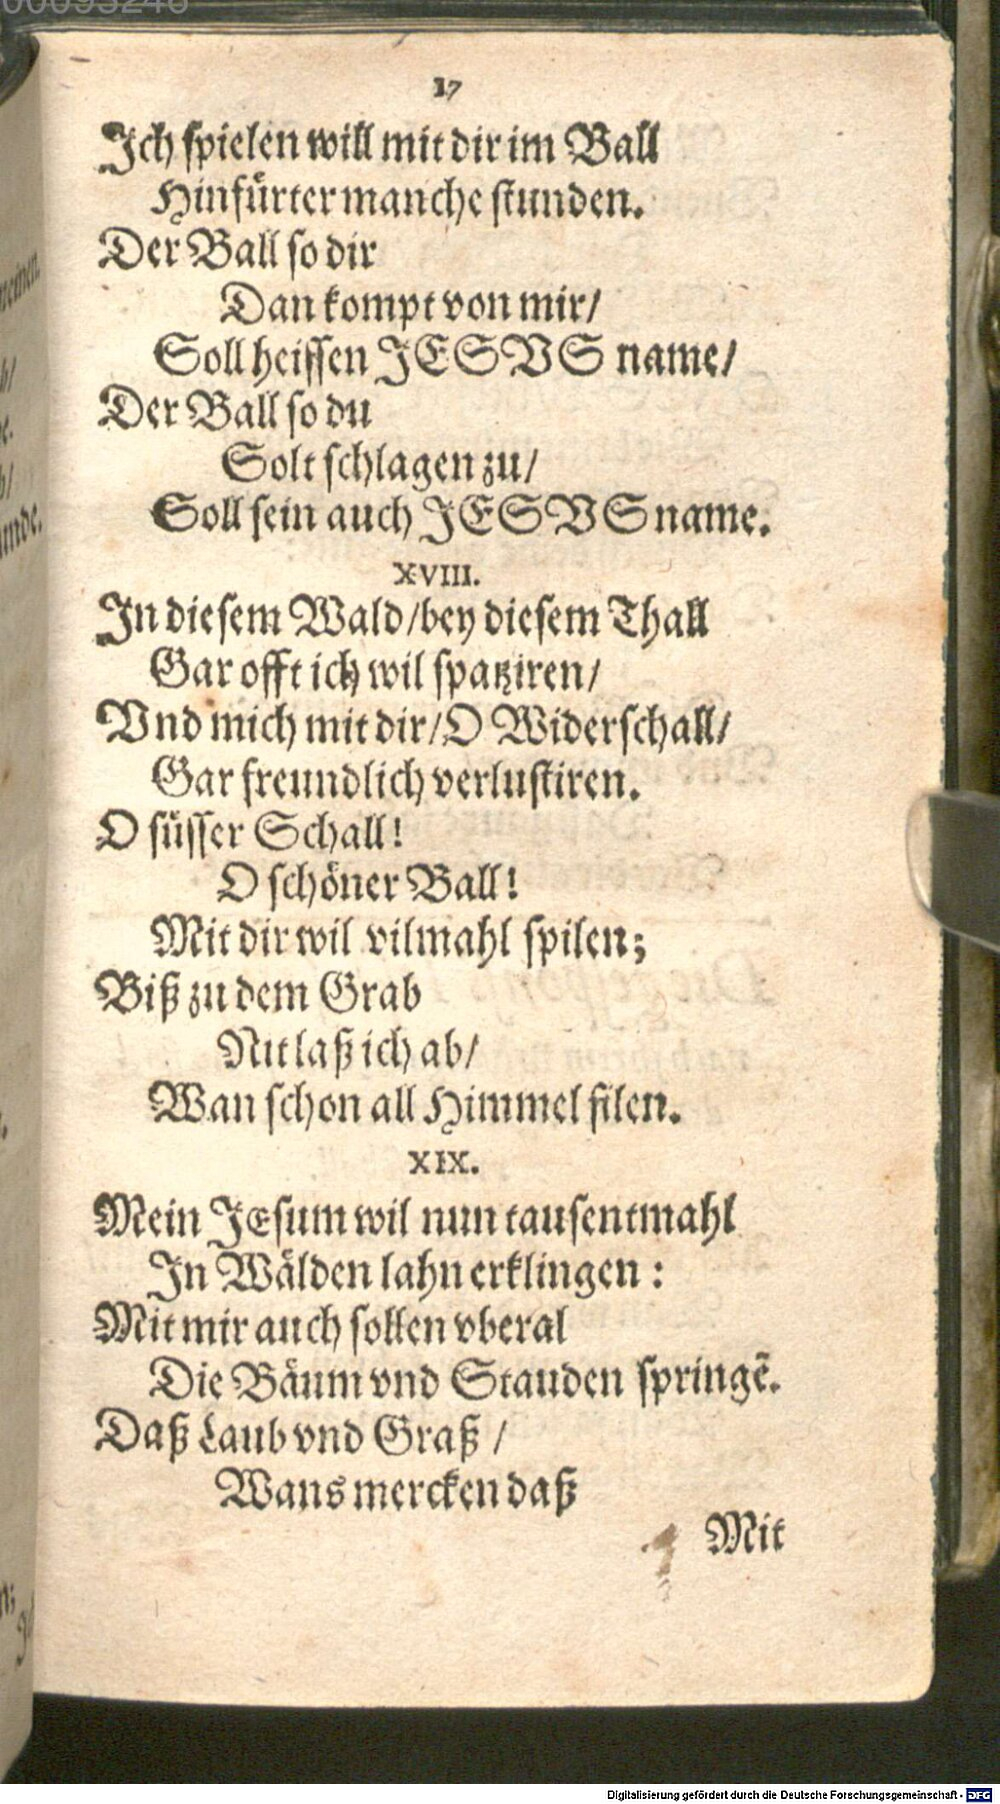 00095246
17
Ich spielen will mit dir im Ball
Hinfürter manche stunden.
Der Ball so dir
Dan kompt von mir/
Soll heissen JESVS name/
Der Ball so du
Solt schlagen zu/
Soll sein auch JESVS name.
XVIII.
In diesem Wald/bey diesem Thall
Gar offt ich wil spatziren/
Vnd mich mit dir/O Widerschall/
Gar freundlich verlustiren.
O süsser Schall!
O schöner Ball!
Mit dir wil vilmahl spilen;
Biß zu dem Grab
Nit laß ich ab/
Wan schon all Himmel filen.
XIX.
Mein JEsum wil nun tausentmahl
In Wälden lahn erklingen:
Mit mir auch sollen vberal
Die Bäum vnd Stauden springẽ.
Daß Laub vnd Graß /
Wans mercken daß
Mit
Digitalisierung gefördert durch die Deutsche Forschungsgemeinschaft - DFG